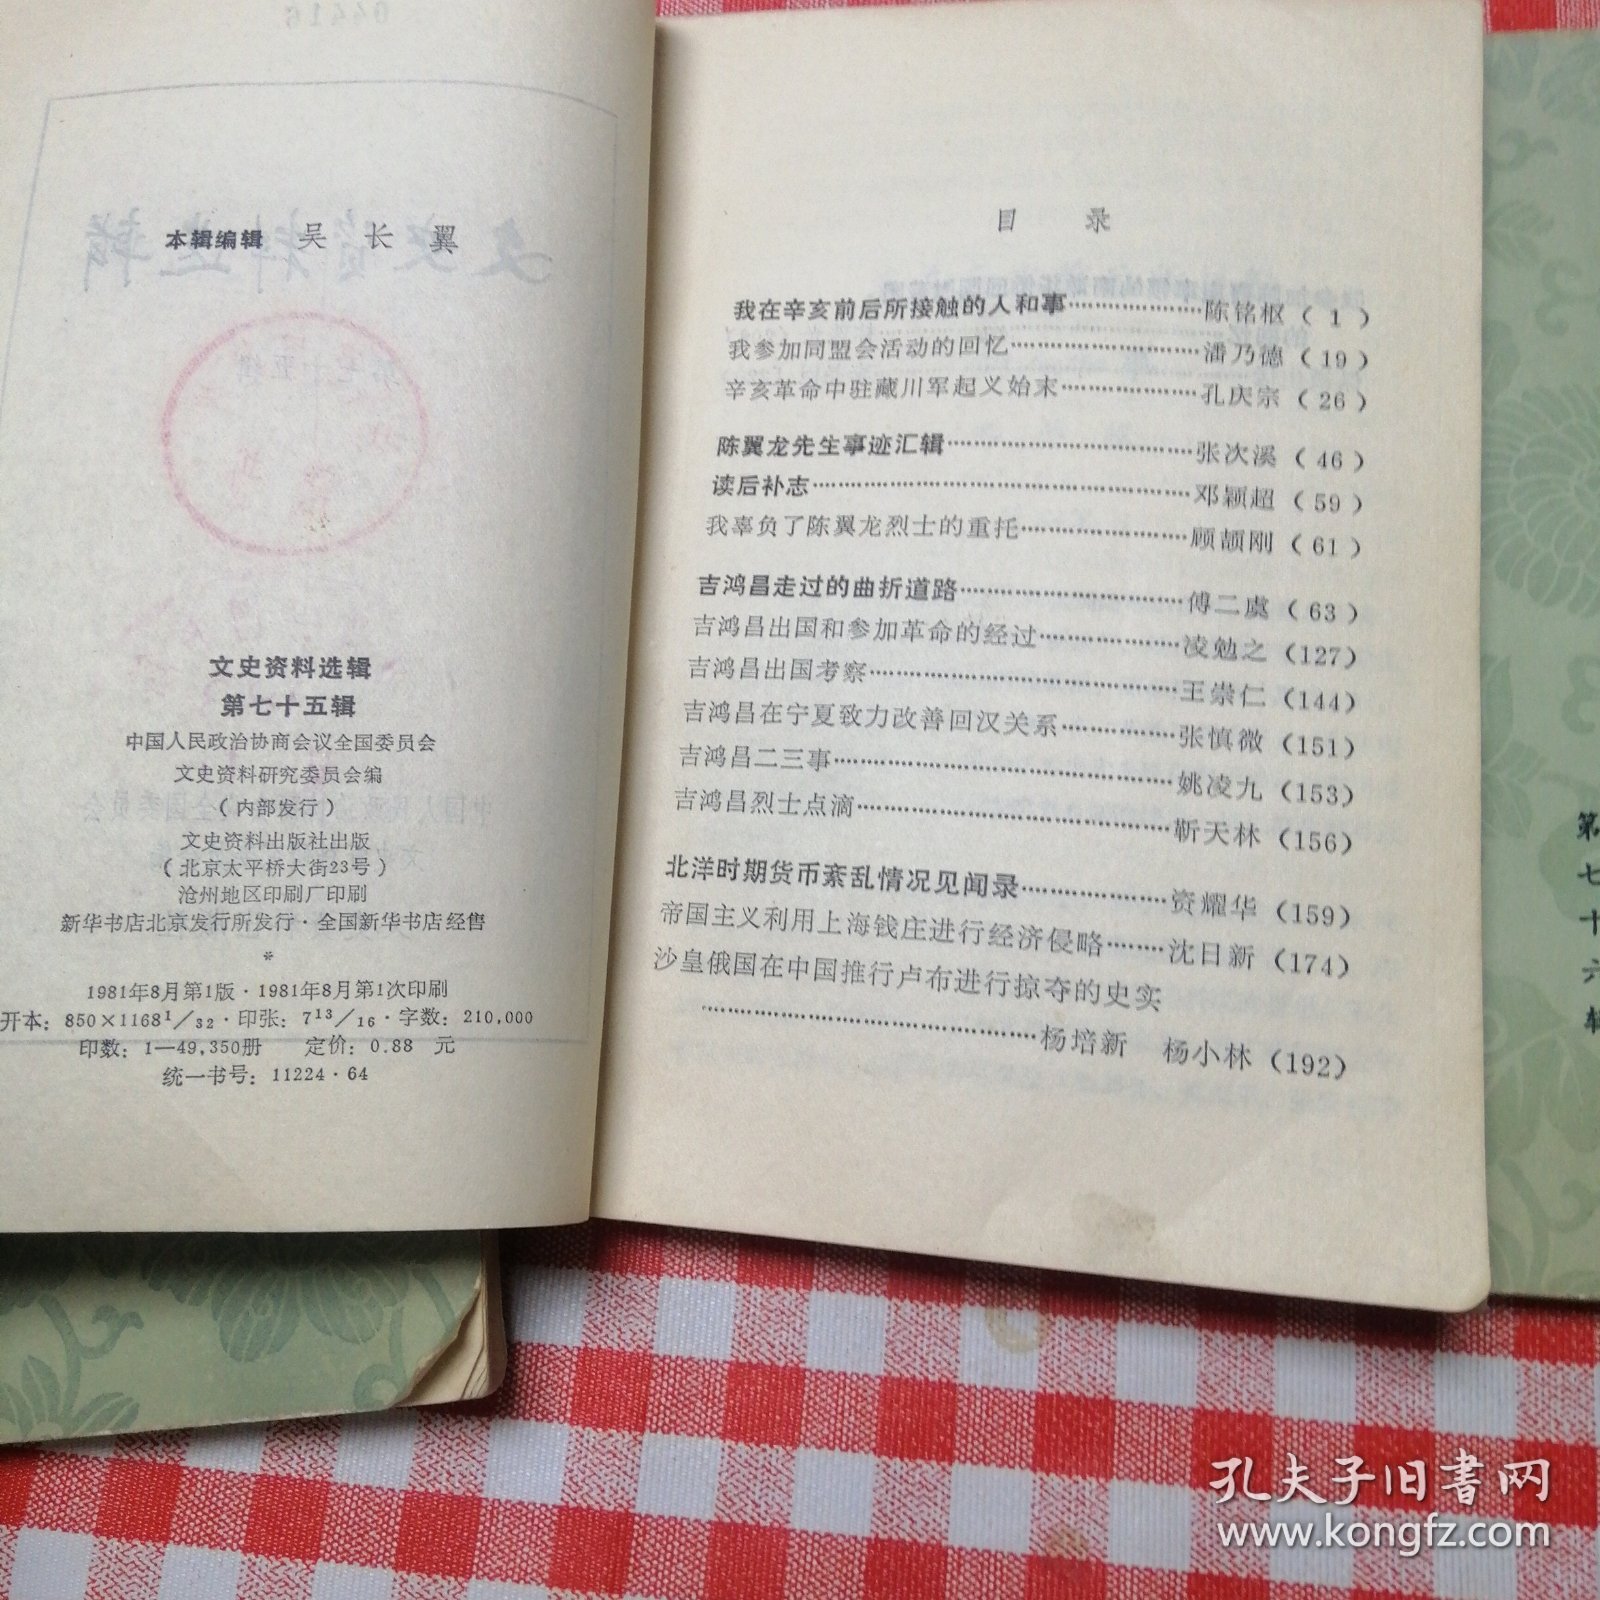 本辑编辑 吴长翼
文史资料选辑
第七十五辑
中国人民政治协商会议全国委员会
文史资料研究委员会编
（内部发行）
文史资料出版社出版
（北京太平桥大街23号）
沧州地区印刷厂印刷
新华书店北京发行所发行·全国新华书店经售
*
1981年8月第1版·1981年8月第1次印刷
开本：850×1168¹/₃₂·印张：7¹³/₁₆·字数：210,000
印数：1—49,350册 定价：0.88 元
统一书号：11224·64
目 录
我在辛亥前后所接触的人和事……………陈铭枢（1）
我参加同盟会活动的回忆……………潘乃德（19）
辛亥革命中驻藏川军起义始末……………孔庆宗（26）
陈翼龙先生事迹汇辑……………张次溪（46）
读后补志……………邓颖超（59）
我辜负了陈翼龙烈士的重托……………顾颉刚（61）
吉鸿昌走过的曲折道路……………傅二虞（63）
吉鸿昌出国和参加革命的经过……………凌勉之（127）
吉鸿昌出国考察……………王崇仁（144）
吉鸿昌在宁夏致力改善回汉关系……………张慎微（151）
吉鸿昌二三事……………姚凌九（153）
吉鸿昌烈士点滴……………靳天林（156）
北洋时期货币紊乱情况见闻录……………资耀华（159）
帝国主义利用上海钱庄进行经济侵略………沈日新（174）
沙皇俄国在中国推行卢布进行掠夺的史实
……………杨培新 杨小林（192）
第七十六辑
孔夫子旧书网
www.kongfz.com